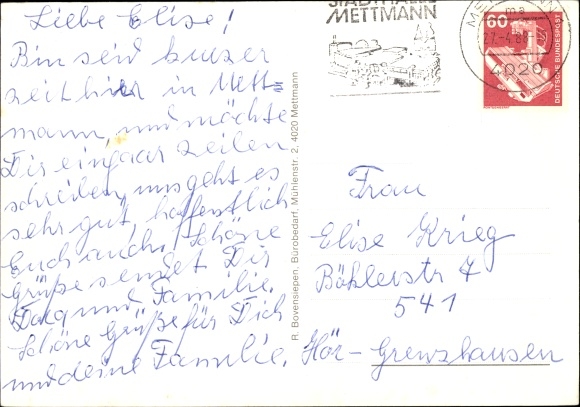 Liebe Elise!
Bin seid kurzer
zeit hier in Mett=
mann, und möchte
Dir ein paar zeilen
schreiben, uns geht es
sehr gut, hoffentlich
Euch auch. Schöne
Grüße sendet Dir
und Familie.
Schöne Grüße für Dich
und deine Familie.
R. Bovensiepen, Bürobedarf, Mühlenstr. 2, 4020 Mettmann
METTMANN
27.-4.88
4020
60
DEUTSCHE BUNDESPOST
Frau
Elise Krieg
Böhlerstr 7
541
Hör-Grenzhausen